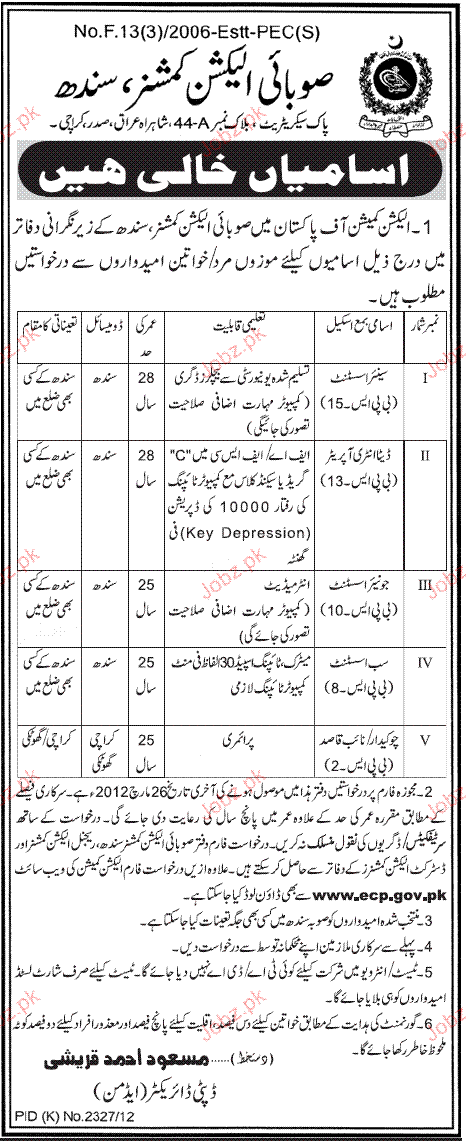 No.F.13(3)/2006-Estt-PEC(S)
صوبائی الیکشن کمشنر، سندھ
پاک سیکریٹریٹ، بلاک نمبر 44-A، شاہراہ عراق، صدر، کراچی۔
اسامیاں خالی ھیں
1۔ الیکشن کمیشن آف پاکستان میں صوبائی الیکشن کمشنر، سندھ کے زیر نگرانی دفاتر
میں درج ذیل اسامیوں کیلئے موزوں مرد/خواتین امیدواروں سے درخواستیں
مطلوب ہیں۔
نمبر شمار اسامی بمع اسکیل تعلیمی قابلیت عمر کی حد ڈومیسائل تعیناتی کا مقام
I سینئر اسسٹنٹ (بی پی ایس۔15) تسلیم شدہ یونیورسٹی سے بیچلرز ڈگری (کمپیوٹر مہارت اضافی صلاحیت تصور کی جائیگی) 28 سال سندھ سندھ کے کسی بھی ضلع میں
II ڈیٹا انٹری آپریٹر (بی پی ایس۔13) ایف اے/ایف ایس سی میں "C" گریڈ یا سیکنڈ کلاس مع کمپیوٹر ٹائپنگ کی رفتار 10000 کی ڈپریشن (Key Depression) فی گھنٹہ 28 سال سندھ سندھ کے کسی بھی ضلع میں
III جونیئر اسسٹنٹ (بی پی ایس۔10) انٹرمیڈیٹ (کمپیوٹر مہارت اضافی صلاحیت تصور کی جائے گی) 25 سال سندھ سندھ کے کسی بھی ضلع میں
IV سب اسسٹنٹ (بی پی ایس۔8) میٹرک، ٹائپنگ اسپیڈ 30 الفاظ فی منٹ کمپیوٹر ٹائپنگ لازمی 25 سال سندھ سندھ کے کسی بھی ضلع میں
V چوکیدار/نائب قاصد (بی پی ایس۔2) پرائمری 25 سال کراچی گھوٹکی کراچی/گھوٹکی
2۔ مجوزہ فارم پر درخواستیں دفتر ہذا میں موصول ہونے کی آخری تاریخ 26 مارچ 2012ء ہے۔ سرکاری فیصلے
کے مطابق مقررہ عمر کی حد کے علاوہ عمر میں پانچ سال کی رعایت دی جائے گی۔ درخواست کے ساتھ
سرٹیفکیٹس/ڈگریوں کی نقول منسلک نہ کریں۔ درخواست فارم دفتر صوبائی الیکشن کمشنر سندھ، ریجنل الیکشن کمشنر اور
ڈسٹرکٹ الیکشن کمشنرز کے دفاتر سے حاصل کر سکتے ہیں۔ علاوہ ازیں درخواست فارم الیکشن کمیشن کی ویب سائٹ
www.ecp.gov.pk سے بھی ڈاؤن لوڈ کیا جاسکتا ہے۔
3۔ منتخب شدہ امیدواروں کو صوبہ سندھ میں کسی بھی جگہ تعینات کیا جاسکتا ہے۔
4۔ پہلے سے سرکاری ملازمین اپنے محکمانہ توسط سے درخواست دیں۔
5۔ ٹیسٹ/انٹرویو میں شرکت کیلئے کوئی ٹی اے/ڈی اے نہیں دیا جائے گا۔ ٹیسٹ کیلئے صرف شارٹ لسٹڈ
امیدواروں کو ہی بلایا جائے گا۔
6۔ گورنمنٹ کی ہدایت کے مطابق خواتین کیلئے دس فیصد، اقلیت کیلئے پانچ فیصد اور معذور افراد کیلئے دو فیصد کوٹہ
ملحوظ خاطر رکھا جائے گا۔
(دستخط)......مسعود احمد قریشی
ڈپٹی ڈائریکٹر (ایڈمن)
PID (K) No.2327/12
Jobz.pk